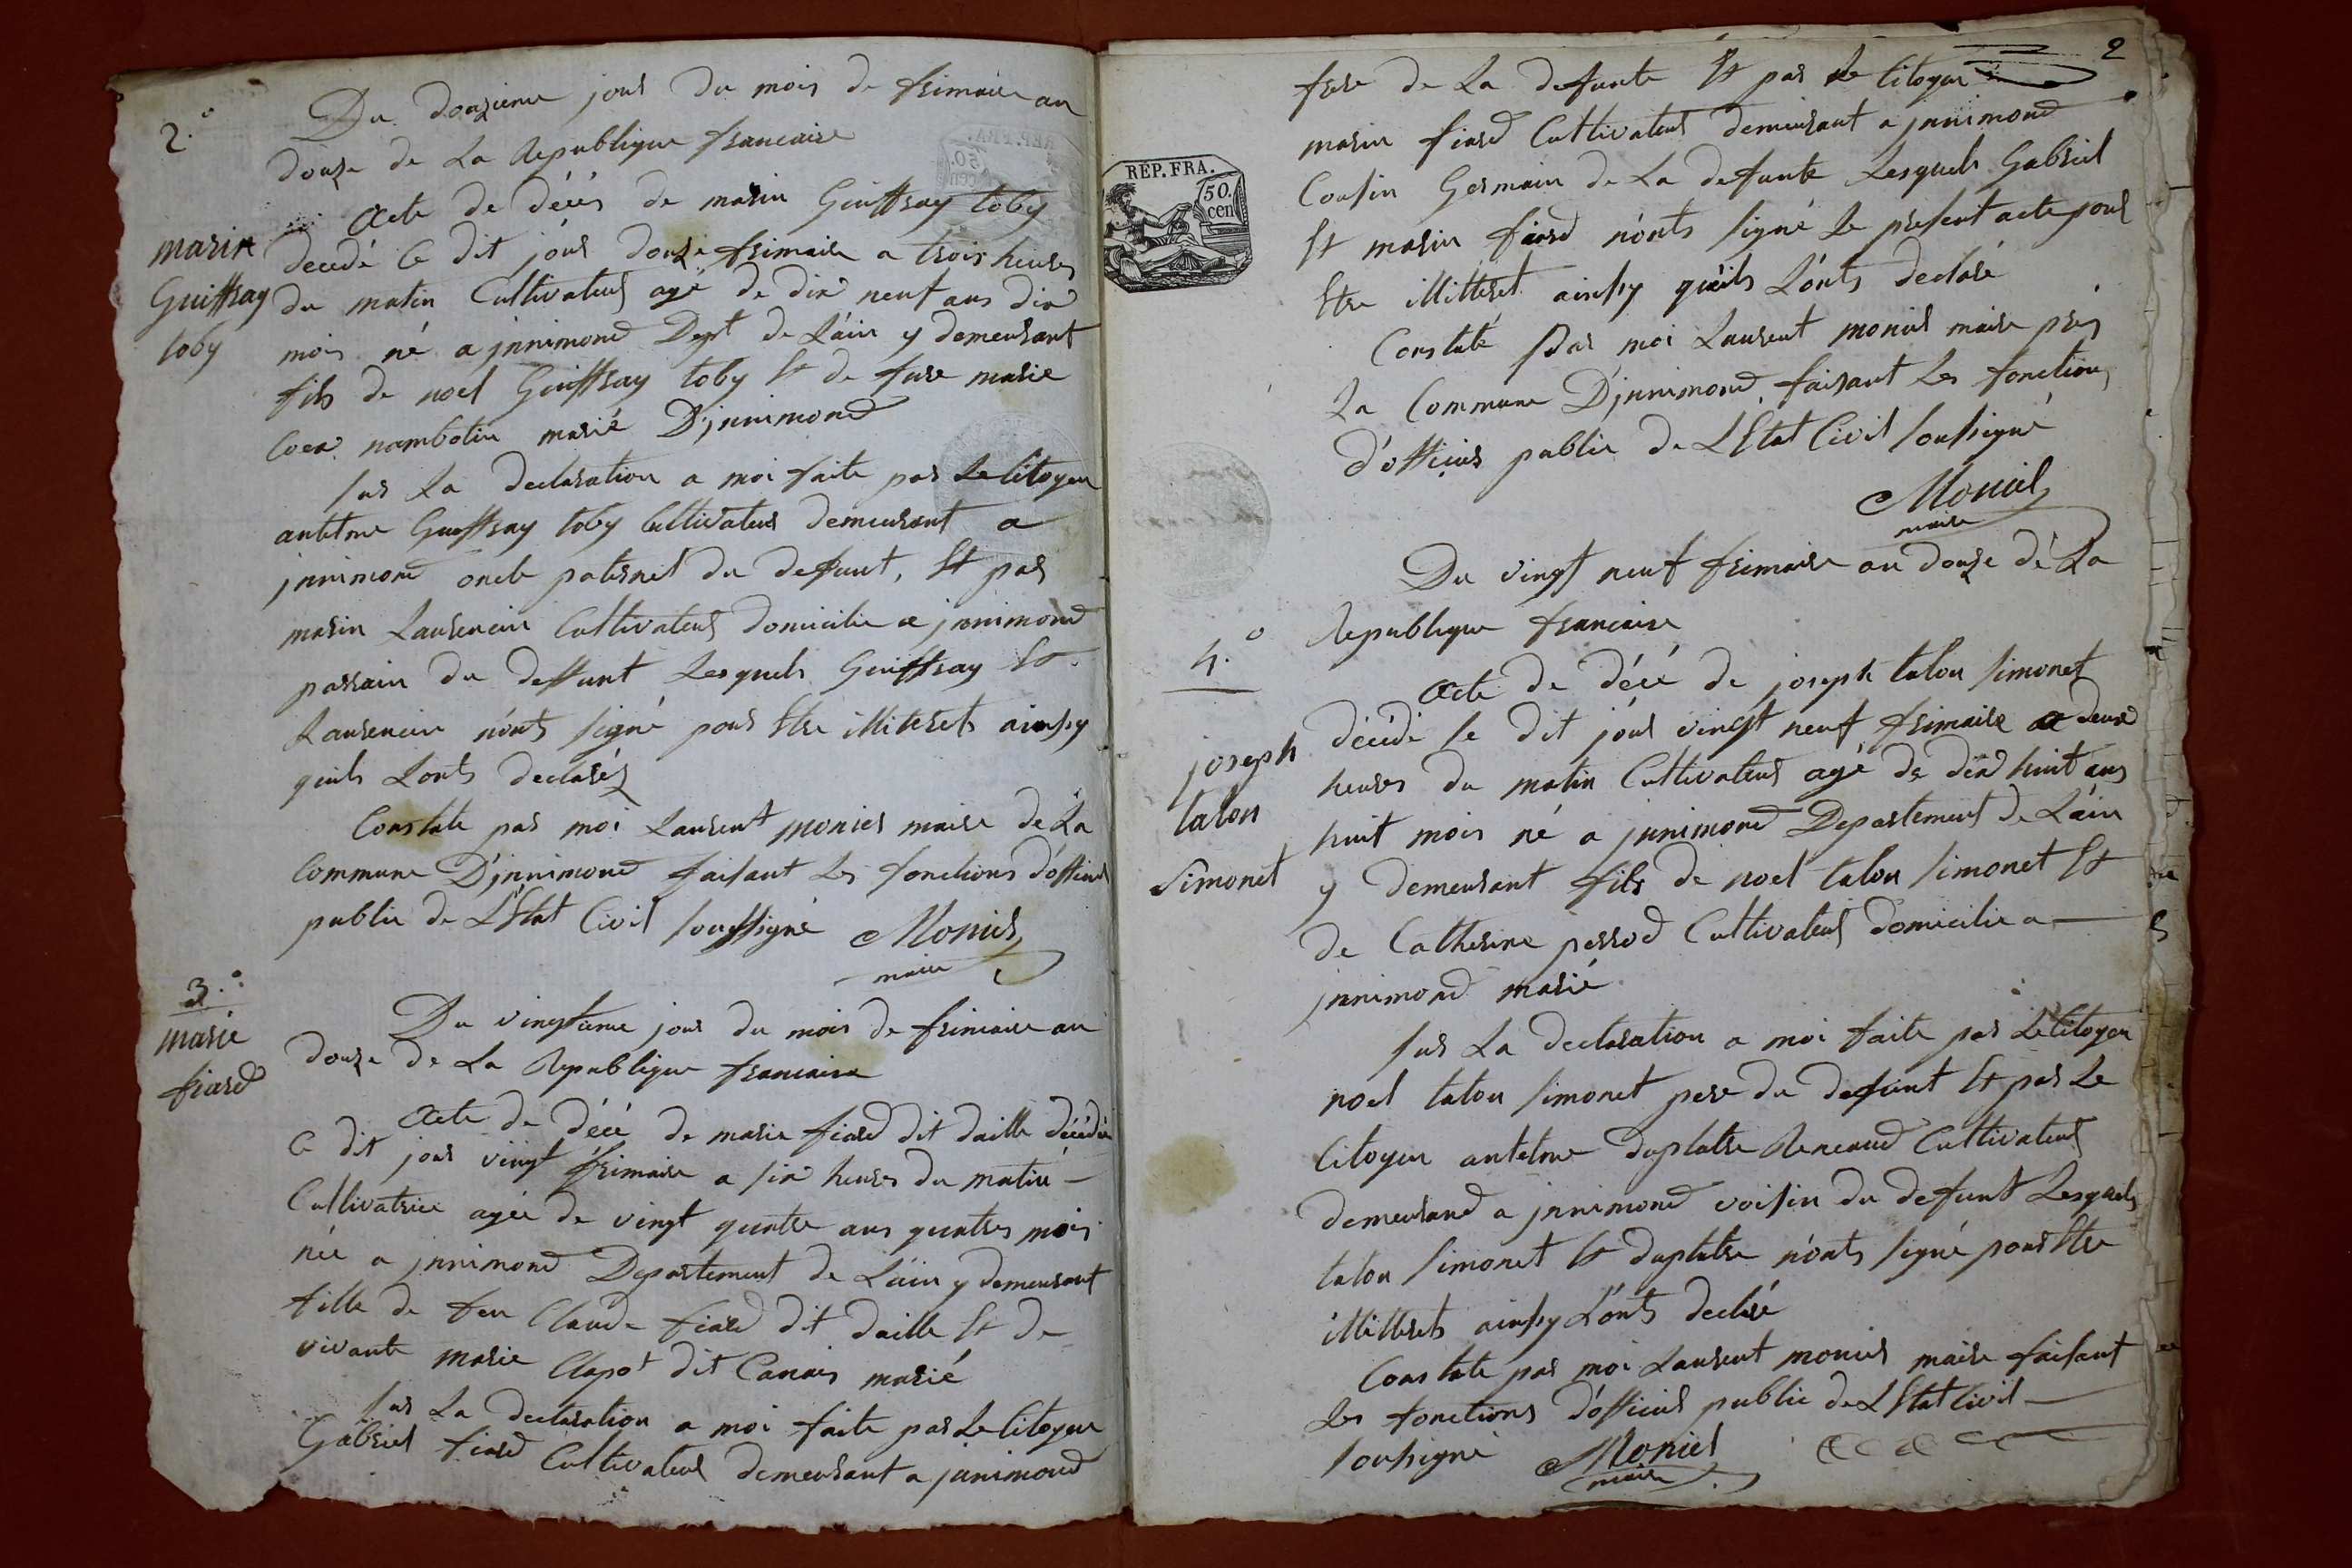 2.°
Du douzieme jour du mois de frimaire an
douze de La Republique francaise
marin
Guiffray
toby
Acte de décés de marin Guiffray toby
decedé Ce dit jour douze frimaire a trois heures
du matin Cultivateur agé de dix neuf ans dix
mois né a jnnimond Dept de L'ain y demeurant
fils de noel Guiffray toby Et de fuse marie
nambotin marié D'jnnimond
sur La declaration a moi faite par Le Citoyen
antelme Guiffray toby Cultivateur demeurant a
jnnimond oncle paternel du deffunt, Et par
marin Laurencin Cultivateur domicilie a jnnimond
parrain du deffunt Lesquels Guiffray Et
Laurencin n'onts signé pour Etre illiterets ainsy
quils Lonts declarés
Constate par moi Laurent monier maire de La
Commune D'jnnimond faisant Les fonctions d'officier
public de L'Etat Civil soussigné Monier
maire
3.°
marie
fiard
Du vingtieme jour du mois de frimaire an
douze de La Republique francaise
Acte de décé de marie fiard dit daille décédée
Ce dit jour vingt frimaire a six heures du matin
Cultivatrice agée de vingt quatre ans quatres mois
née a jnnimond Departement de L'ain y demeurant
fille de feu Claude fiard dit daille Et de
vivante marie Clapot dit Canais marié
sur La declaration a moi faite par Le Citoyen
Gabriel fiard Cultivateur demeurant a jnnimond
2
frere de La defunte Et par Le Citoyen
marin fiard Cultivateur demeurant a jnnimond
Cousin Germain de La defunte Lesquels Gabriel
Et marin fiard n'onts signé Le present acte pour
Etre illitteret ainsy qu'ils L'onts declaré
Constaté Par moi Laurent monier maire pres
La Commune D'jnnimond, faisant Les fonctions
d'officier public de L'Etat Civil soussigné
Monier
maire
RÉP. FRA.
50.
cen
Du vingt neuf frimaire an douze de La
Republique francaise
4.°
joseph
talon
simonet
Acte de décé de joseph talon simonet
décédé le dit jour vingt neuf frimaire a deux
heures du matin Cultivateur agé de dix huit ans
huit mois né a jnnimond Departement de L'ain
y demeurant fils de noel talon simonet Et
de Catherine perrod Cultivateur domicilie a
jnnimond marié
sur La declaration a moi faite par Le Citoyen
noel talon simonet pere du defunt Et par Le
Citoyen antelme duplatre Renaud Cultivateur
demeurand a jnnimond voisin du defunt Lesquels
talon simonet Et duplatre n'onts signé pour Etre
illitterets ainsy L'onts declaré
Constate par moi Laurent monier maire faisant
Les fonctions d'officier public de L'Etat Civil
soussigné Monier
maire